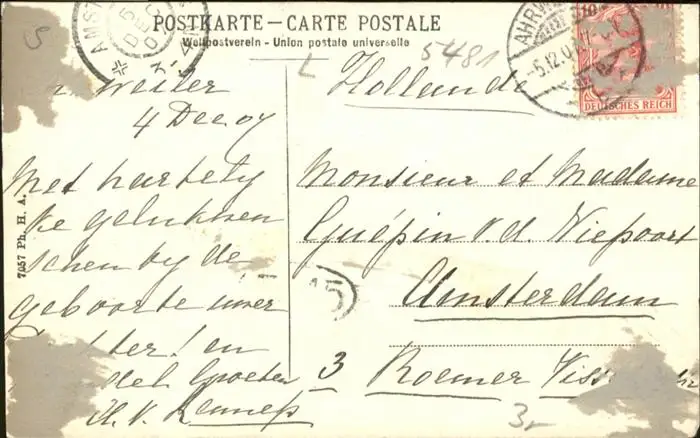 POSTKARTE – CARTE POSTALE
Weltpostverein – Union postale universelle
5481
AMST
AHRW
-5.12.0
10
DEUTSCHES REICH
weiler
4 Dec 07
Met hartely
ke gelukwen
schen by de
geboorte uwer
ter! en
Groeten
H. v. Lennep
7057 Ph. H. A.
Hollande
Monsieur et Madame
Guépin v. d. Niepoort
Amsterdam
3 Roemer Viss
3,-